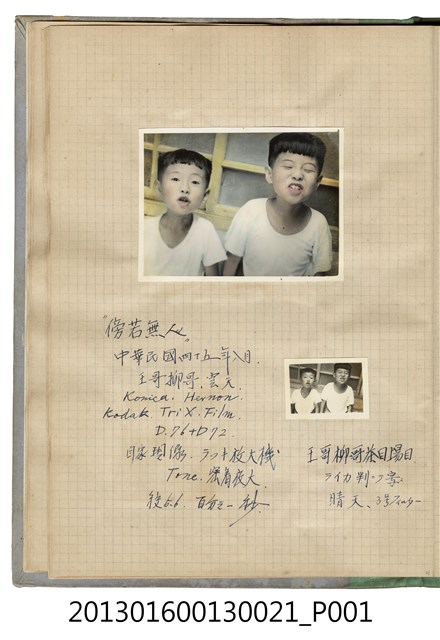 "傍若無人"
中華民國四十五年八月.
王哥柳哥. 雲天.
Konica. Hexnon.
Kodak Tri X. Film.
D.76+D72.
自家現像. ラッキ放大機
Tone. 密着放大
後5.6. 百分之一秒.
王哥柳哥茶目場目
ライカ判
晴天、フィルター
201301600130021_P001